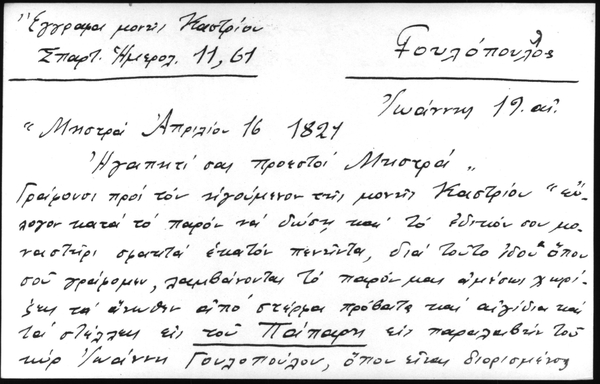 "Ἔγγραφα μονῆς Καστρίου
Σπαρτ. Ἡμερολ. 11, 61
Γουλόπουλος
Ἰωάννης 19. αἰ.
"Μηστρᾶ Ἀπριλίου 16 1821
Ἀγαπητοί σας προεστοί Μηστρᾶ"
Γράφουσι πρός τόν ἡγούμενον τῆς μονῆς Καστρίου "εὔ-
λογον κατά τό παρόν νά δώσῃ καί τό ἐδικόν σου μο-
ναστήρι σφακτά ἑκατόν πενῆντα, διά τοῦτο ἰδού ὅπου
σοῦ γράφομεν, λαμβάνοντας τό παρόν μας ἀμέσως χωρί-
ζεις τά ἄνωθεν ἀπό στέρφα πρόβατα καί αἰγίδια καί
τά στέλλεις εἰς τοῦ Πάπαρη εἰς παραλαβήν τοῦ
κύρ Ἰωάννη Γουλοπούλου, ὅπου εἶναι διορισμένος